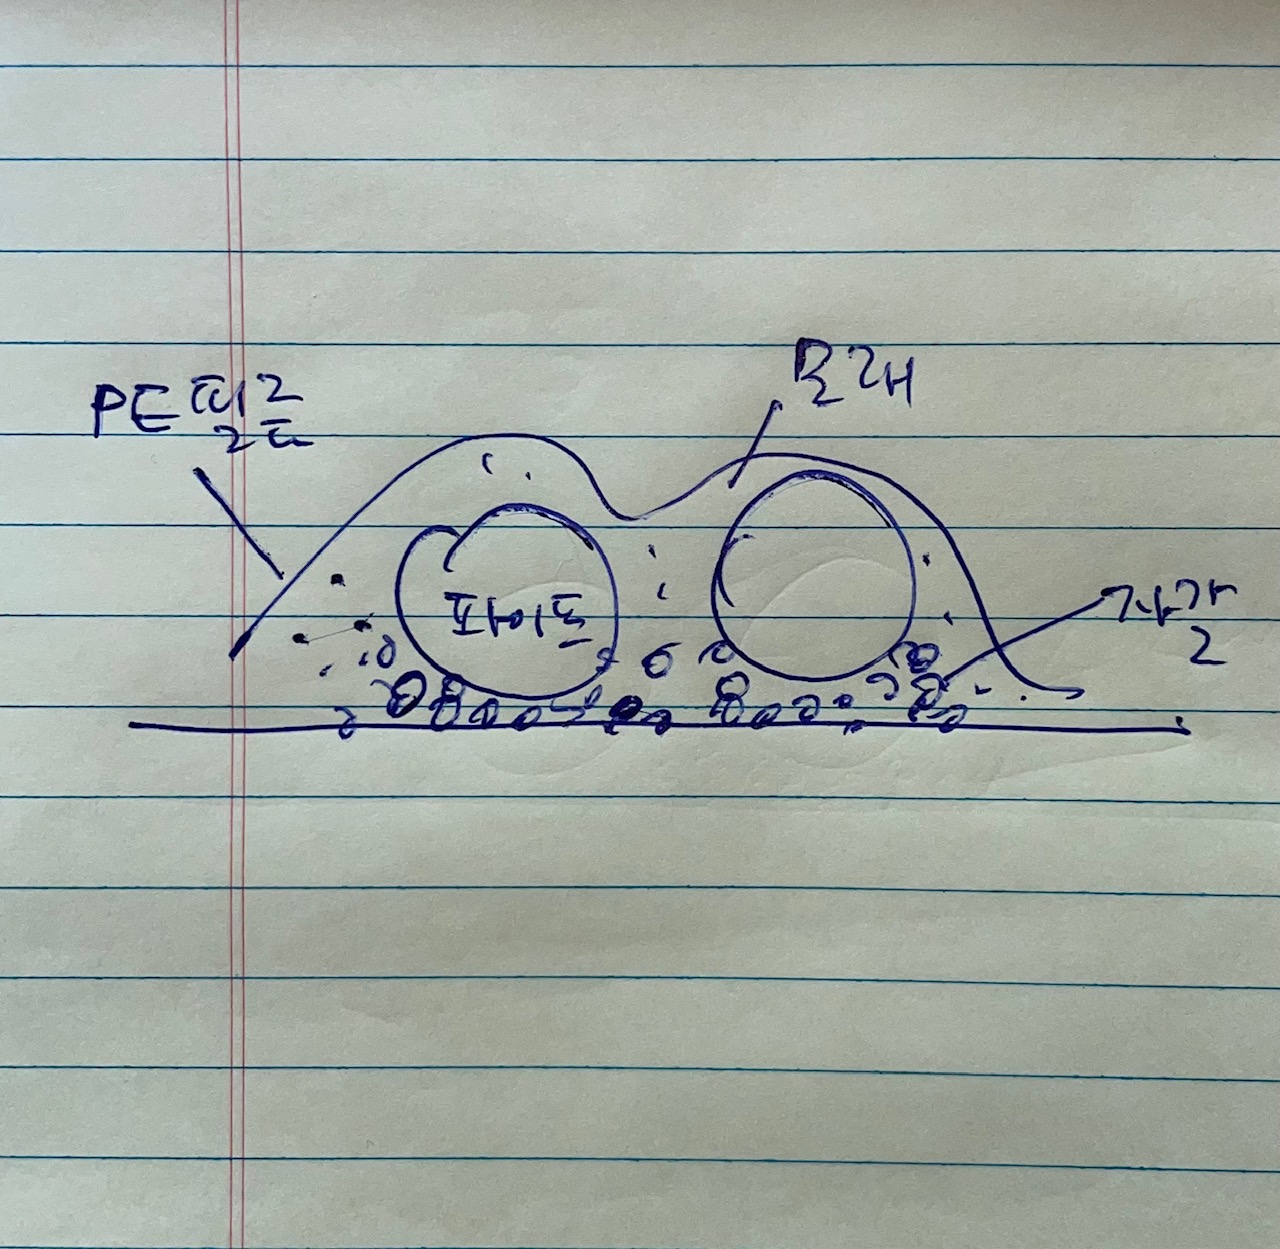 PE필름
모래
파이프
자갈